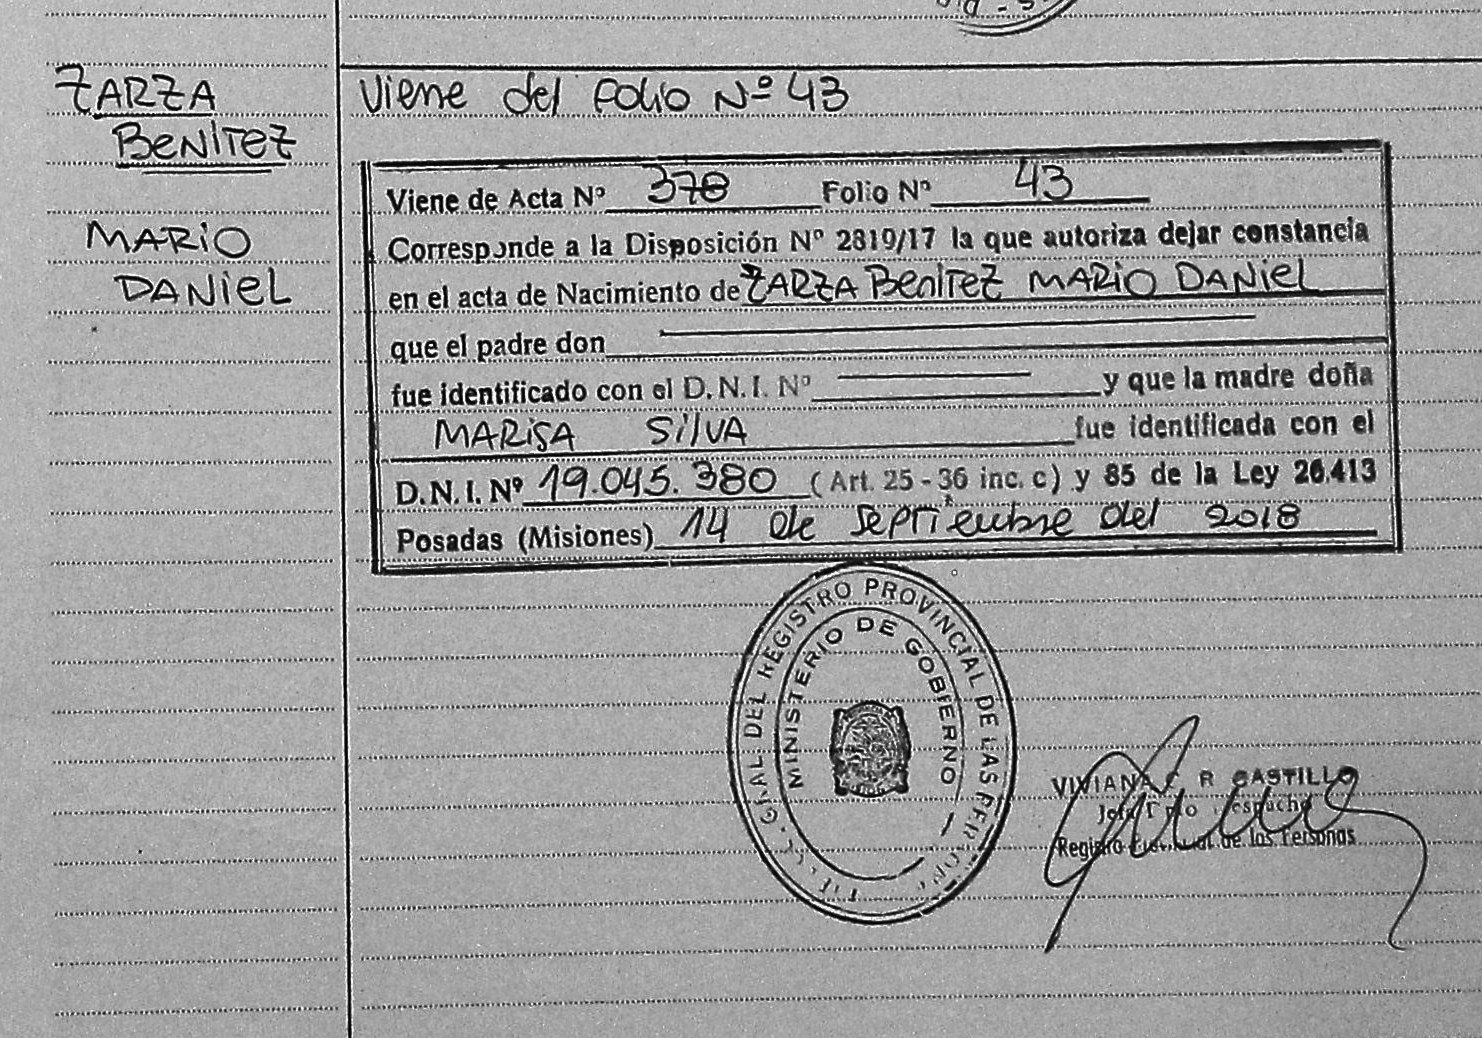 ZARZA
BENITEZ
MARIO
DANIEL
Viene del Folio Nº 43
Viene de Acta Nº 378 Folio Nº 43
Corresponde a la Disposición Nº 2819/17 la que autoriza dejar constancia
en el acta de Nacimiento de ZARZA BENITEZ MARIO DANIEL
que el padre don
fue identificado con el D.N.I. Nº y que la madre doña
MARISA SILVA fue identificada con el
D.N.I. Nº 19.045.380 (Art. 25 - 36 inc. c) y 85 de la Ley 26.413
Posadas (Misiones) 14 de septiembre del 2018
GRAL. DEL REGISTRO PROVINCIAL DE LAS
MINISTERIO DE GOBIERNO
VIVIANA R CASTILLO
Registro de las Personas